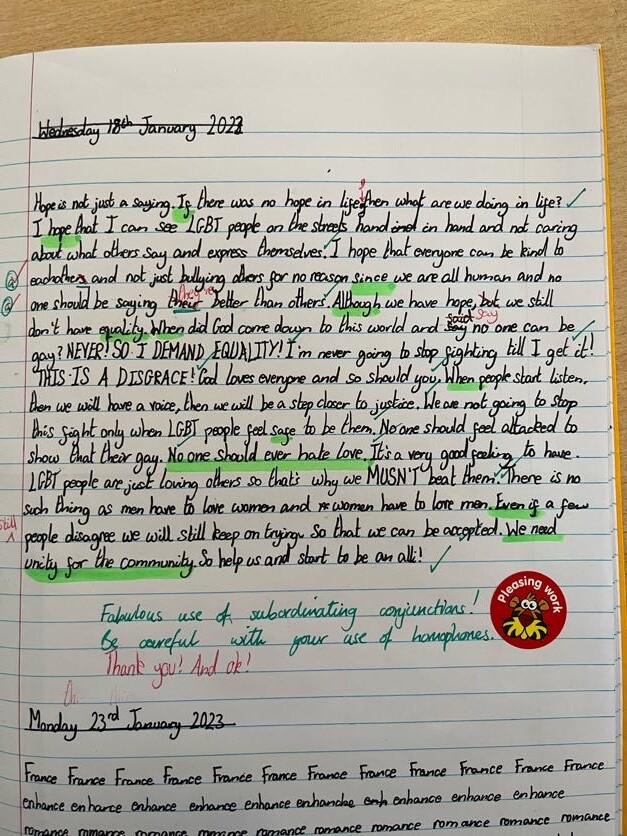 Wednesday 18th January 2023
Hope is not just a saying. If there was no hope in life, then what are we doing in life?
I hope that I can see LGBT people on the streets hand in hand and not caring
about what others say and express themselves. I hope that everyone can be kind to
eachothers and not just bullying others for no reason since we are all human and no
they're
one should be saying their better than others. Although we have hope, but we still
said say
don't have equality. When did God come down to this world and say no one can be
gay? NEVER! SO I DEMAND EQUALITY! I'm never going to stop fighting till I get it!
THIS IS A DISGRACE! God loves everyone and so should you. When people start listen,
then we will have a voice, then we will be a step closer to justice. We are not going to stop
this fight only when LGBT people feel safe to be them. No one should feel attacked to
show that their gay. No one should ever hate love. It's a very good feeling to have.
LGBT people are just loving others so that's why we MUSN'T beat them. There is no
such thing as men have to love women and women have to love men. Even if a few
still
people disagree we will still keep on trying. So that we can be accepted. We need
unity for the community. So help us and start to be an alli!
Fabulous use of subordinating conjunctions!
Be careful with your use of homophones.
Thank you! And ok!
Pleasing work
Monday 23rd January 2023
France France France France France France France France France France France France
enhance enhance enhance enhance enhance enhance enhance enhance enhance
romance romance romance romance romance romance romance romance romance